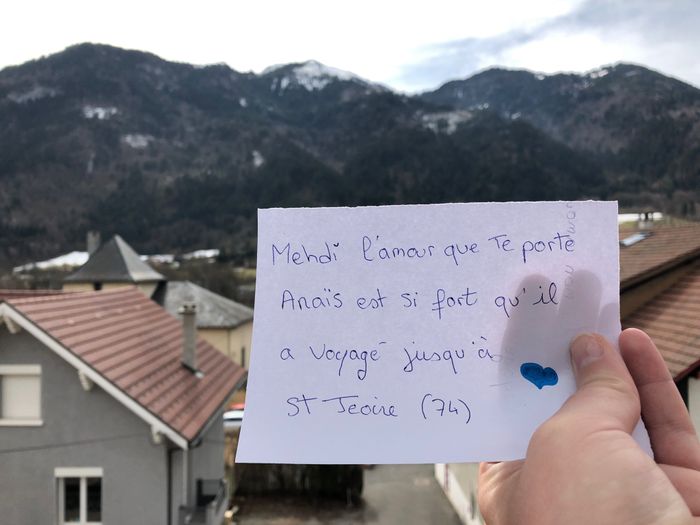 Mehdi l'amour que Te porte
Anaïs est si fort qu'il
a voyagé jusqu'à
ST Jeoire (74)